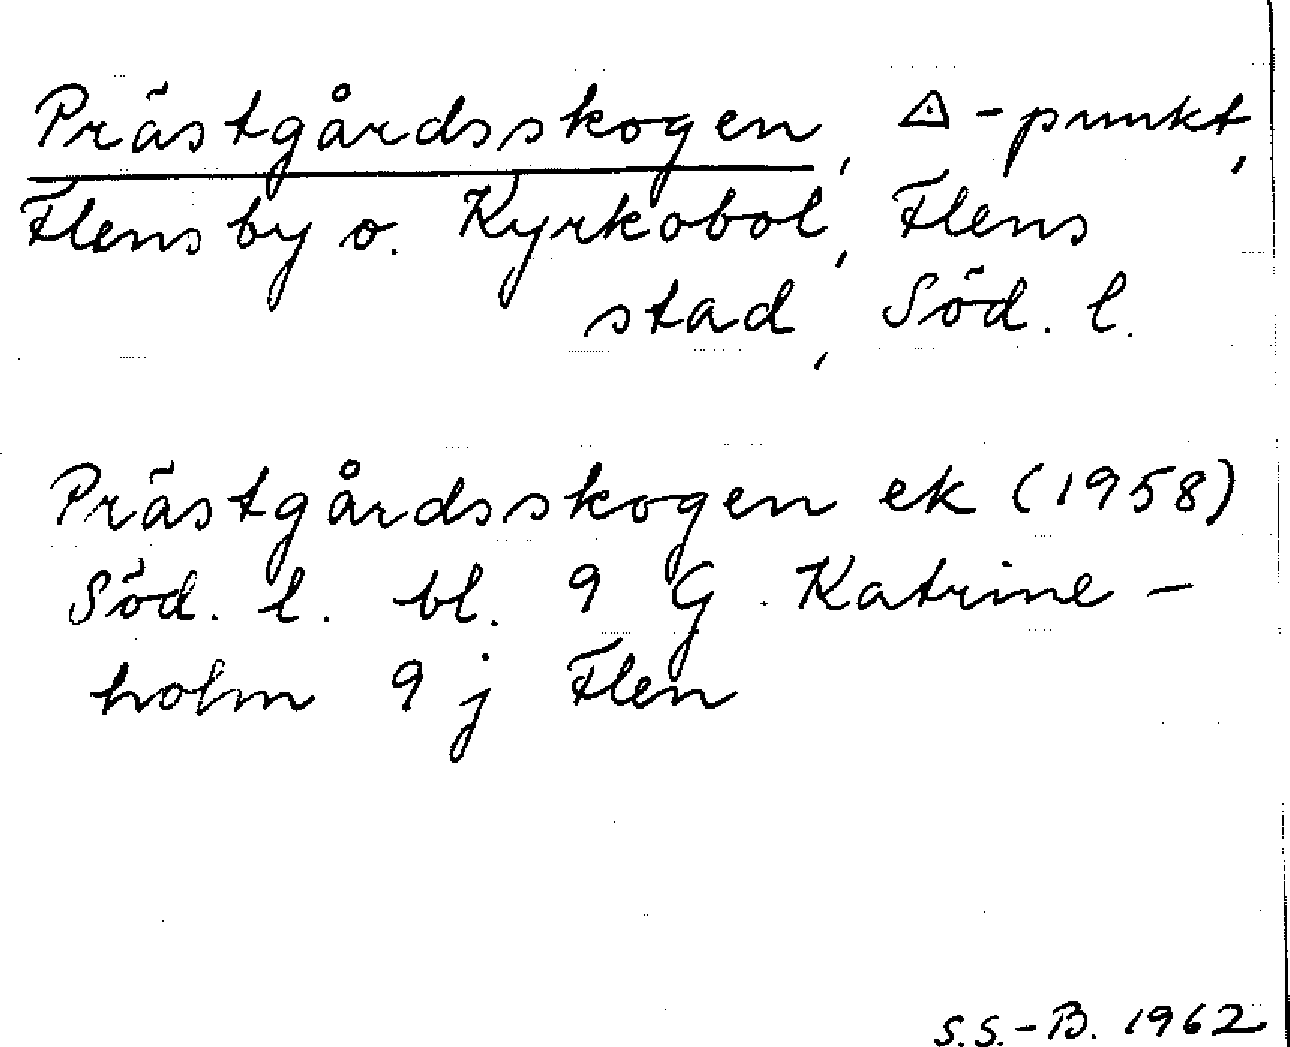 Prästgårdsskogen, ◬-punkt,
Flensby o. Kyrkobol, Flens
stad, Söd. l.
Prästgårdsskogen ek (1958)
Söd. l. bl. 9 G. Katrine-
holm 9 j Flen
S.S.-B. 1962